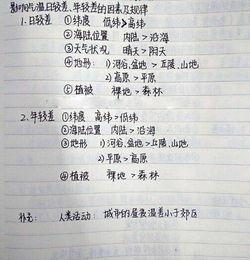 影响气温日较差、年较差的因素及规律
1. 日较差 ①纬度 低纬>高纬
②海陆位置 内陆>沿海
③天气状况 晴天>阴天
④地形: 1) 河谷、盆地>丘陵、山地
2) 高原>平原
⑤植被 裸地>森林
2. 年较差 ①纬度 高纬>低纬
②海陆位置 内陆>沿海
③地形 1) 河谷、盆地>丘陵、山地
2) 平原>高原
④植被 裸地>森林
补充: 人类活动: 城市的昼夜温差小于郊区